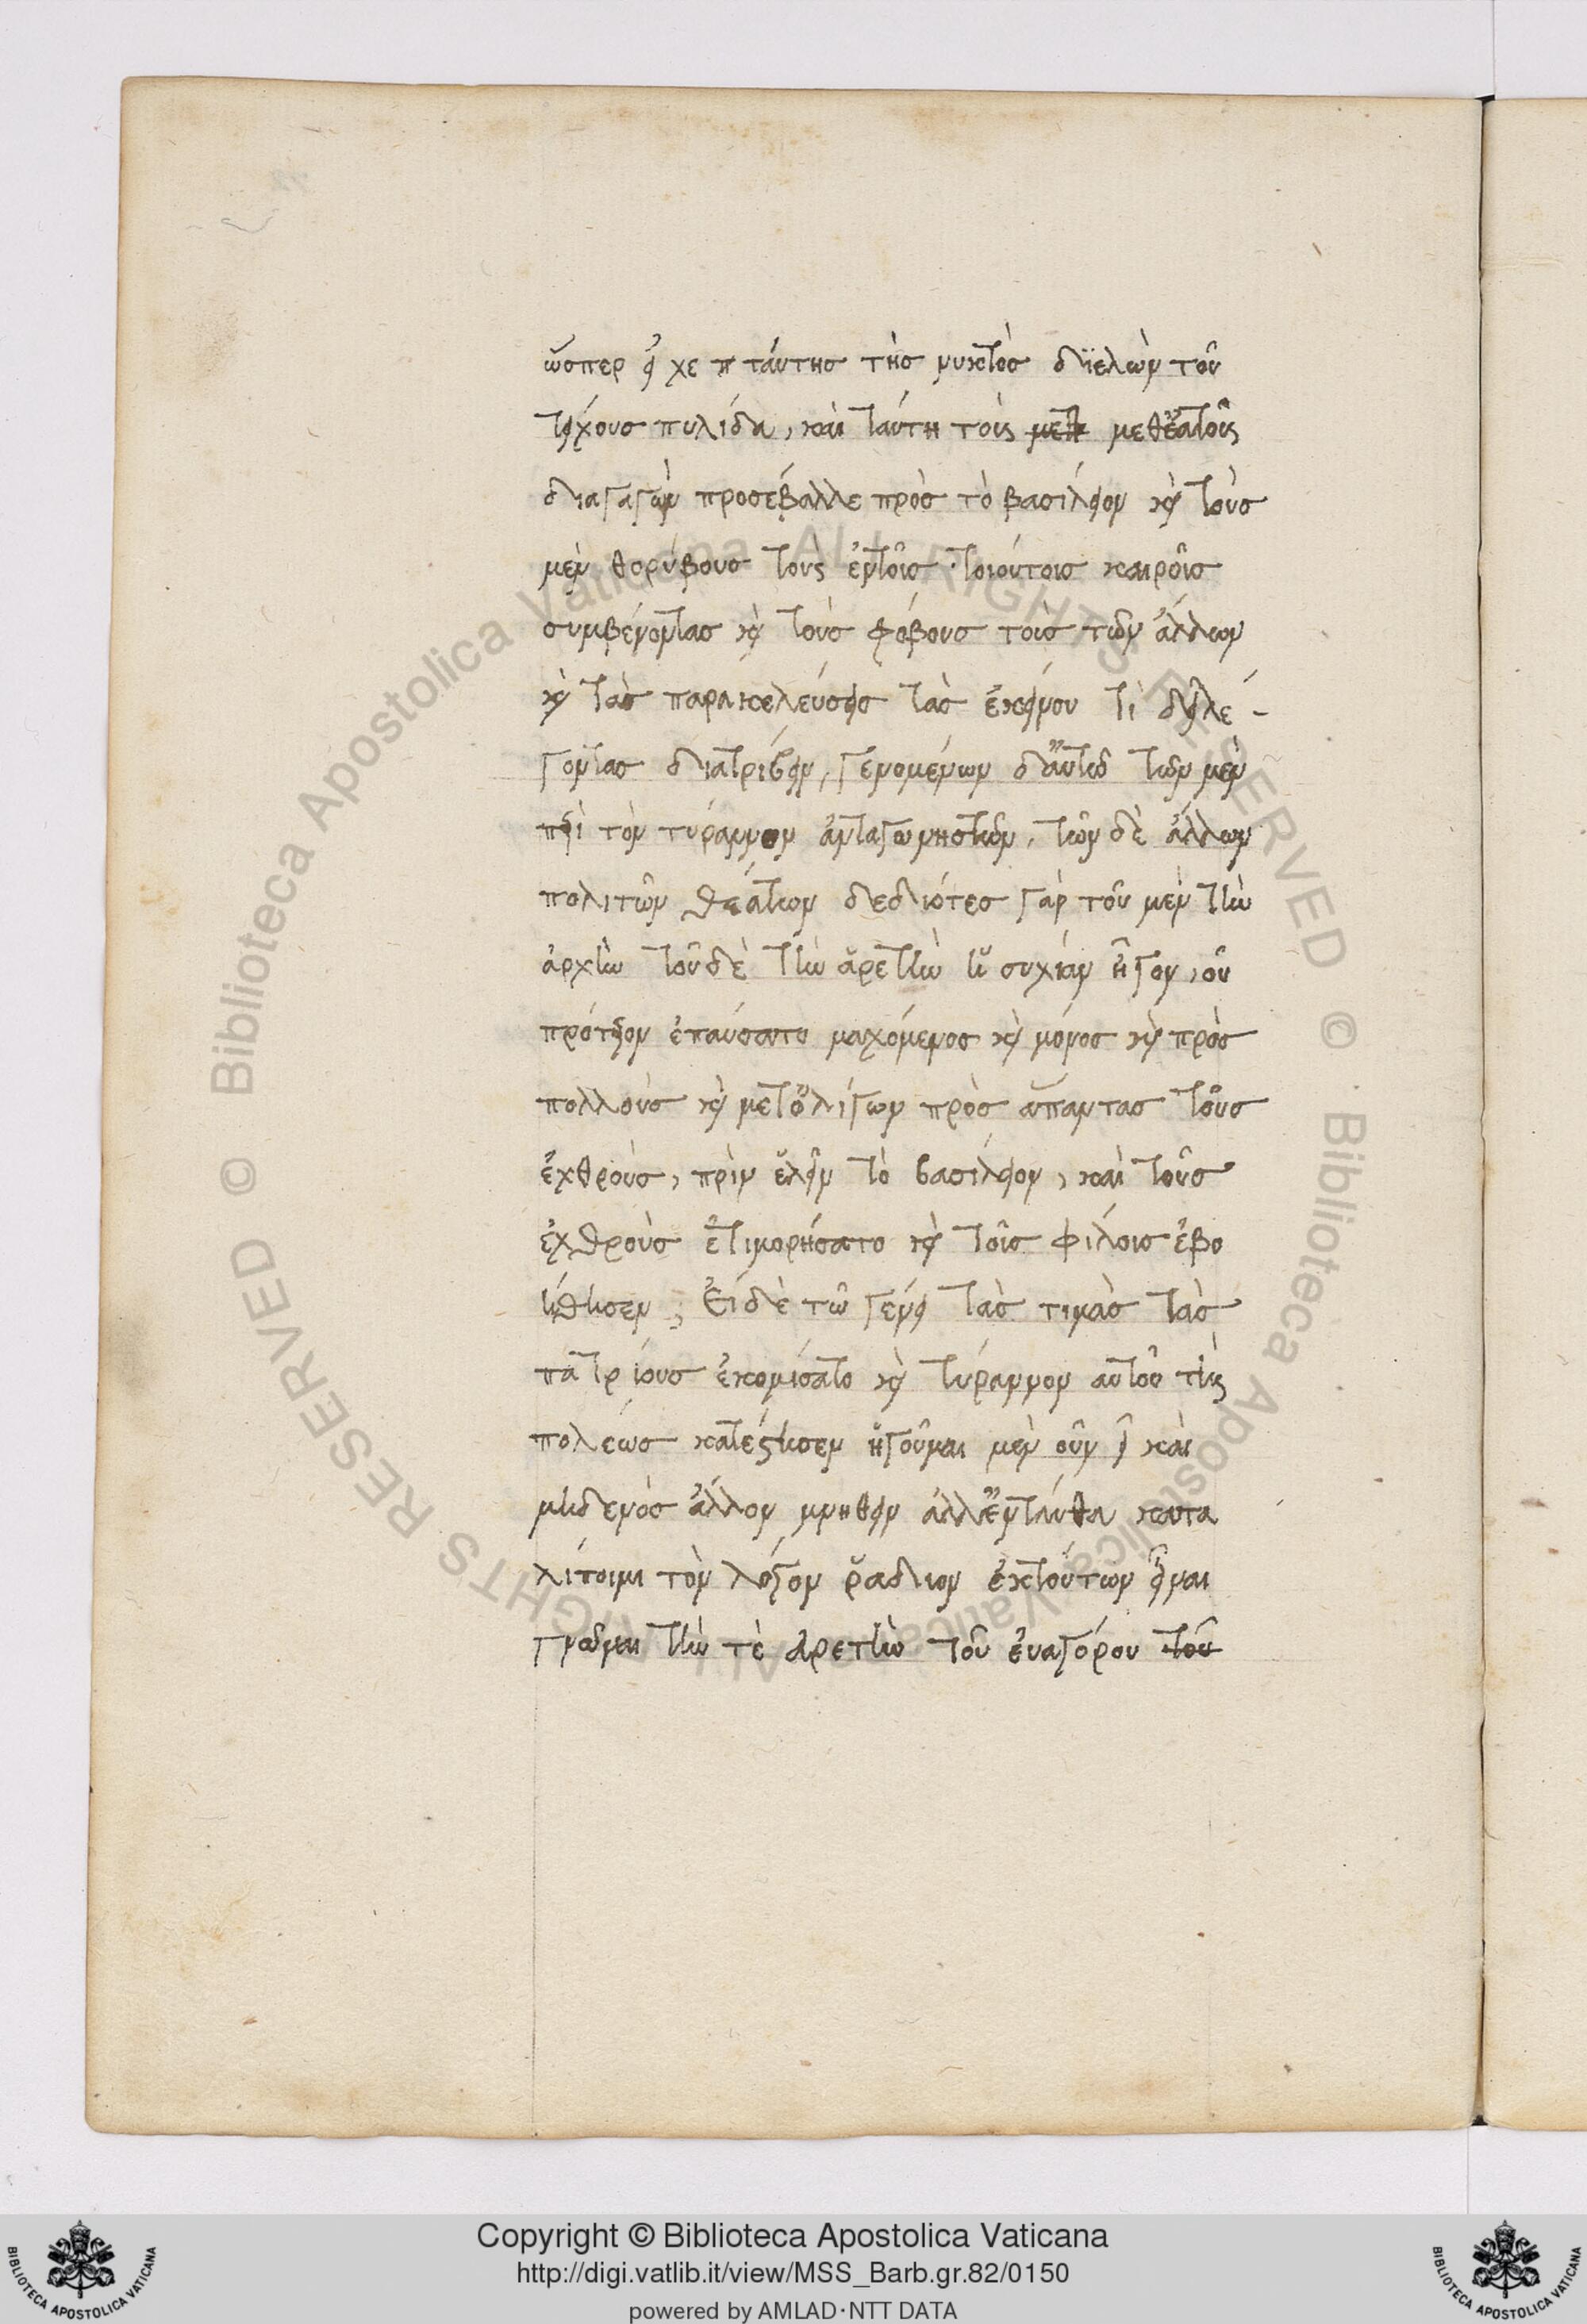 ὥσπερ εἶχε π ταύτης τῆς νυκτὸς διελὼν τοῦ
τείχους πυλίδα, καὶ ταύτη τοὺς μετ μεθἑατοῦς
διαγαγὼν προσέβαλλε πρὸς τὸ βασίλειον καὶ τοὺς
μὲν θορύβους τοὺς ἐντοῖς τοιούτοις καιροῖς
συμβένοντας καὶ τοὺς φόβους τοὶς τῶν ἄλλων
καὶ τὰς παρακελεύσεις τὰς ἐκείνου τὶ δεῖ λέ-
γοντας διατρίβειν, γενομένων δ'αὐτῶ τῶν μὲν
περὶ τὸν τύραννον ἀνταγωνηστῶν, τῶν δὲ ἄλλων
πολιτῶν θεάτων δεδιότες γὰρ τοῦ μὲν τὴν
ἀρχὴν τοῦ δὲ τὴν ἀρετὴν ἡσυχίαν ἦγον, οὐ
πρότερον ἐπαύσατο μαχόμενος καὶ μόνος καὶ πρὸς
πολλοὺς καὶ μετ'ὀλίγων πρὸς ἅπαντας τοὺς
ἐχθροὺς, πρὶν ἑλεῖν τὸ βασίλειον, καὶ τοῦς
ἐχθροὺς ἐτιμορήσατο καὶ τοῖς φίλοις ἐβο
ήθησεν, Ἐί δὲ τῶ γένει τὰς τιμὰς τὰς
πατρίους ἐκομίσατο καὶ τύραννον αὐτοῦ τῆς
πολεώς κατέστησεν ἡγοῦμαι μὲν οὖν εἰ καὶ
μηδενὸς ἄλλον μνηθειν ἀλλ'ἐνταύθα κατα
λίποιμι τὸν λόγον ῥαδιον ἐκτούτων εἶναι
γνῶναι τὴν τὲ ἀρετὴν τοῦ ἐυαγόρου τοῦ
Copyright © Biblioteca Apostolica Vaticana
http://digi.vatlib.it/view/MSS_Barb.gr.82/0150
powered by AMLAD·NTT DATA